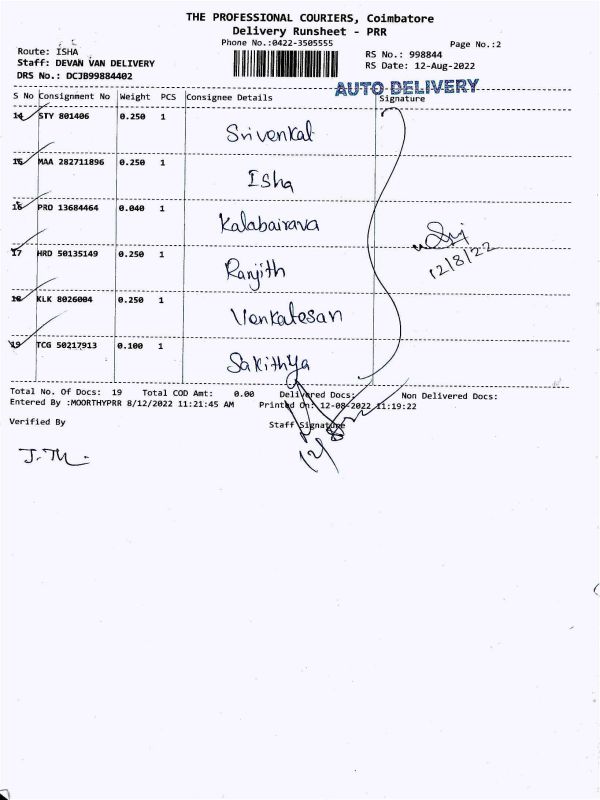 THE PROFESSIONAL COURIERS, Coimbatore
Delivery Runsheet - PRR
Phone No.:0422-3505555 Page No.:2
Route: ISHA RS No.: 998844
Staff: DEVAN VAN DELIVERY RS Date: 12-Aug-2022
DRS No.: DCJB99884402
AUTO DELIVERY
S No Consignment No Weight PCS Consignee Details Signature
14 STY 801406 0.250 1
Srivenkat
15 MAA 282711896 0.250 1
Isha
16 PRO 13684464 0.040 1
Kalabairava
17 HRD 50135149 0.250 1
Ranjith
12/8/22
18 KLK 8026004 0.250 1
Venkatesan
19 TCG 50217913 0.100 1
Sakithya
Total No. Of Docs: 19 Total COD Amt: 0.00 Delivered Docs: Non Delivered Docs:
Entered By :MOORTHYPRR 8/12/2022 11:21:45 AM Printed On: 12-08-2022 11:19:22
Verified By Staff Signature